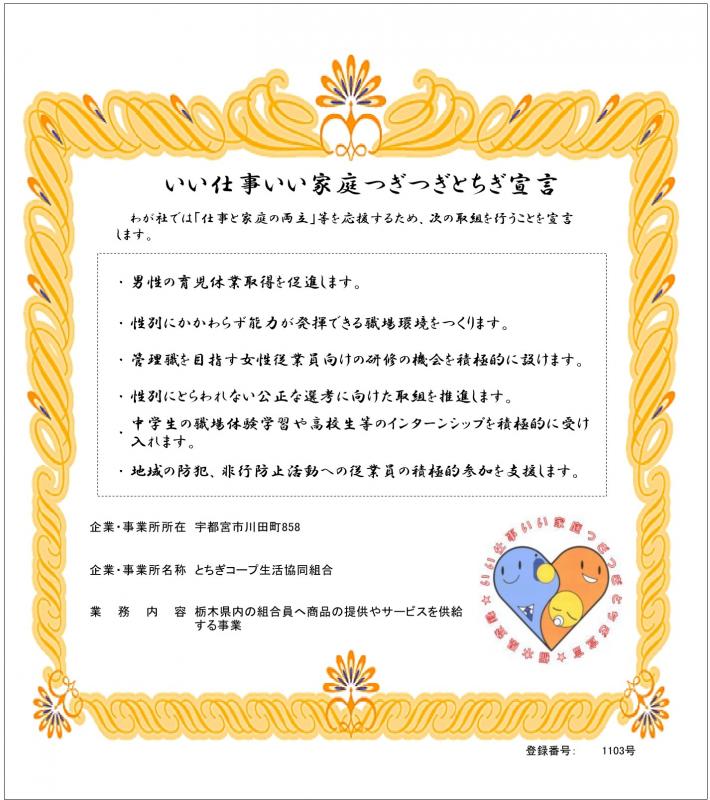 いい仕事いい家庭つぎつぎとちぎ宣言
わが社では「仕事と家庭の両立」等を応援するため、次の取組を行うことを宣言
します。
・ 男性の育児休業取得を促進します。
・ 性別にかかわらず能力が発揮できる職場環境をつくります。
・ 管理職を目指す女性従業員向けの研修の機会を積極的に設けます。
・ 性別にとらわれない公正な選考に向けた取組を推進します。
・ 中学生の職場体験学習や高校生等のインターンシップを積極的に受け
入れます。
・ 地域の防犯、非行防止活動への従業員の積極的参加を支援します。
企業・事業所所在 宇都宮市川田町858
企業・事業所名称 とちぎコープ生活協同組合
業務内容 栃木県内の組合員へ商品の提供やサービスを供給
する事業
いい仕事いい家庭つぎつぎとちぎ宣言
登録番号： 1103号